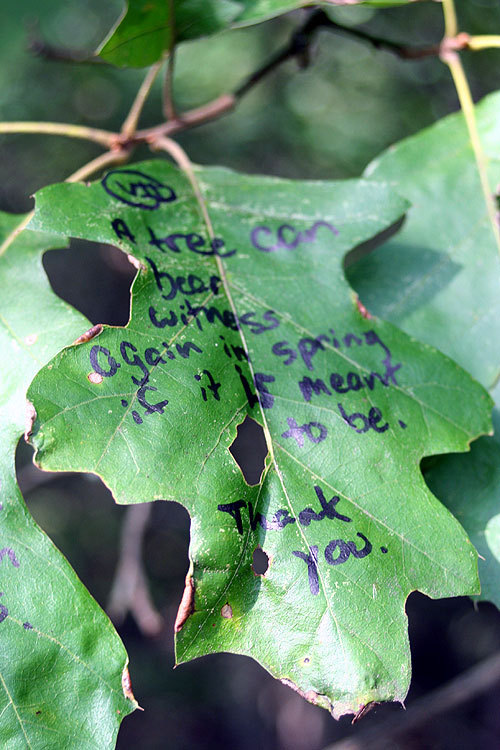 VIII
A tree can
bear
witness
again in spring
if it is meant
to be.
Thank
you.